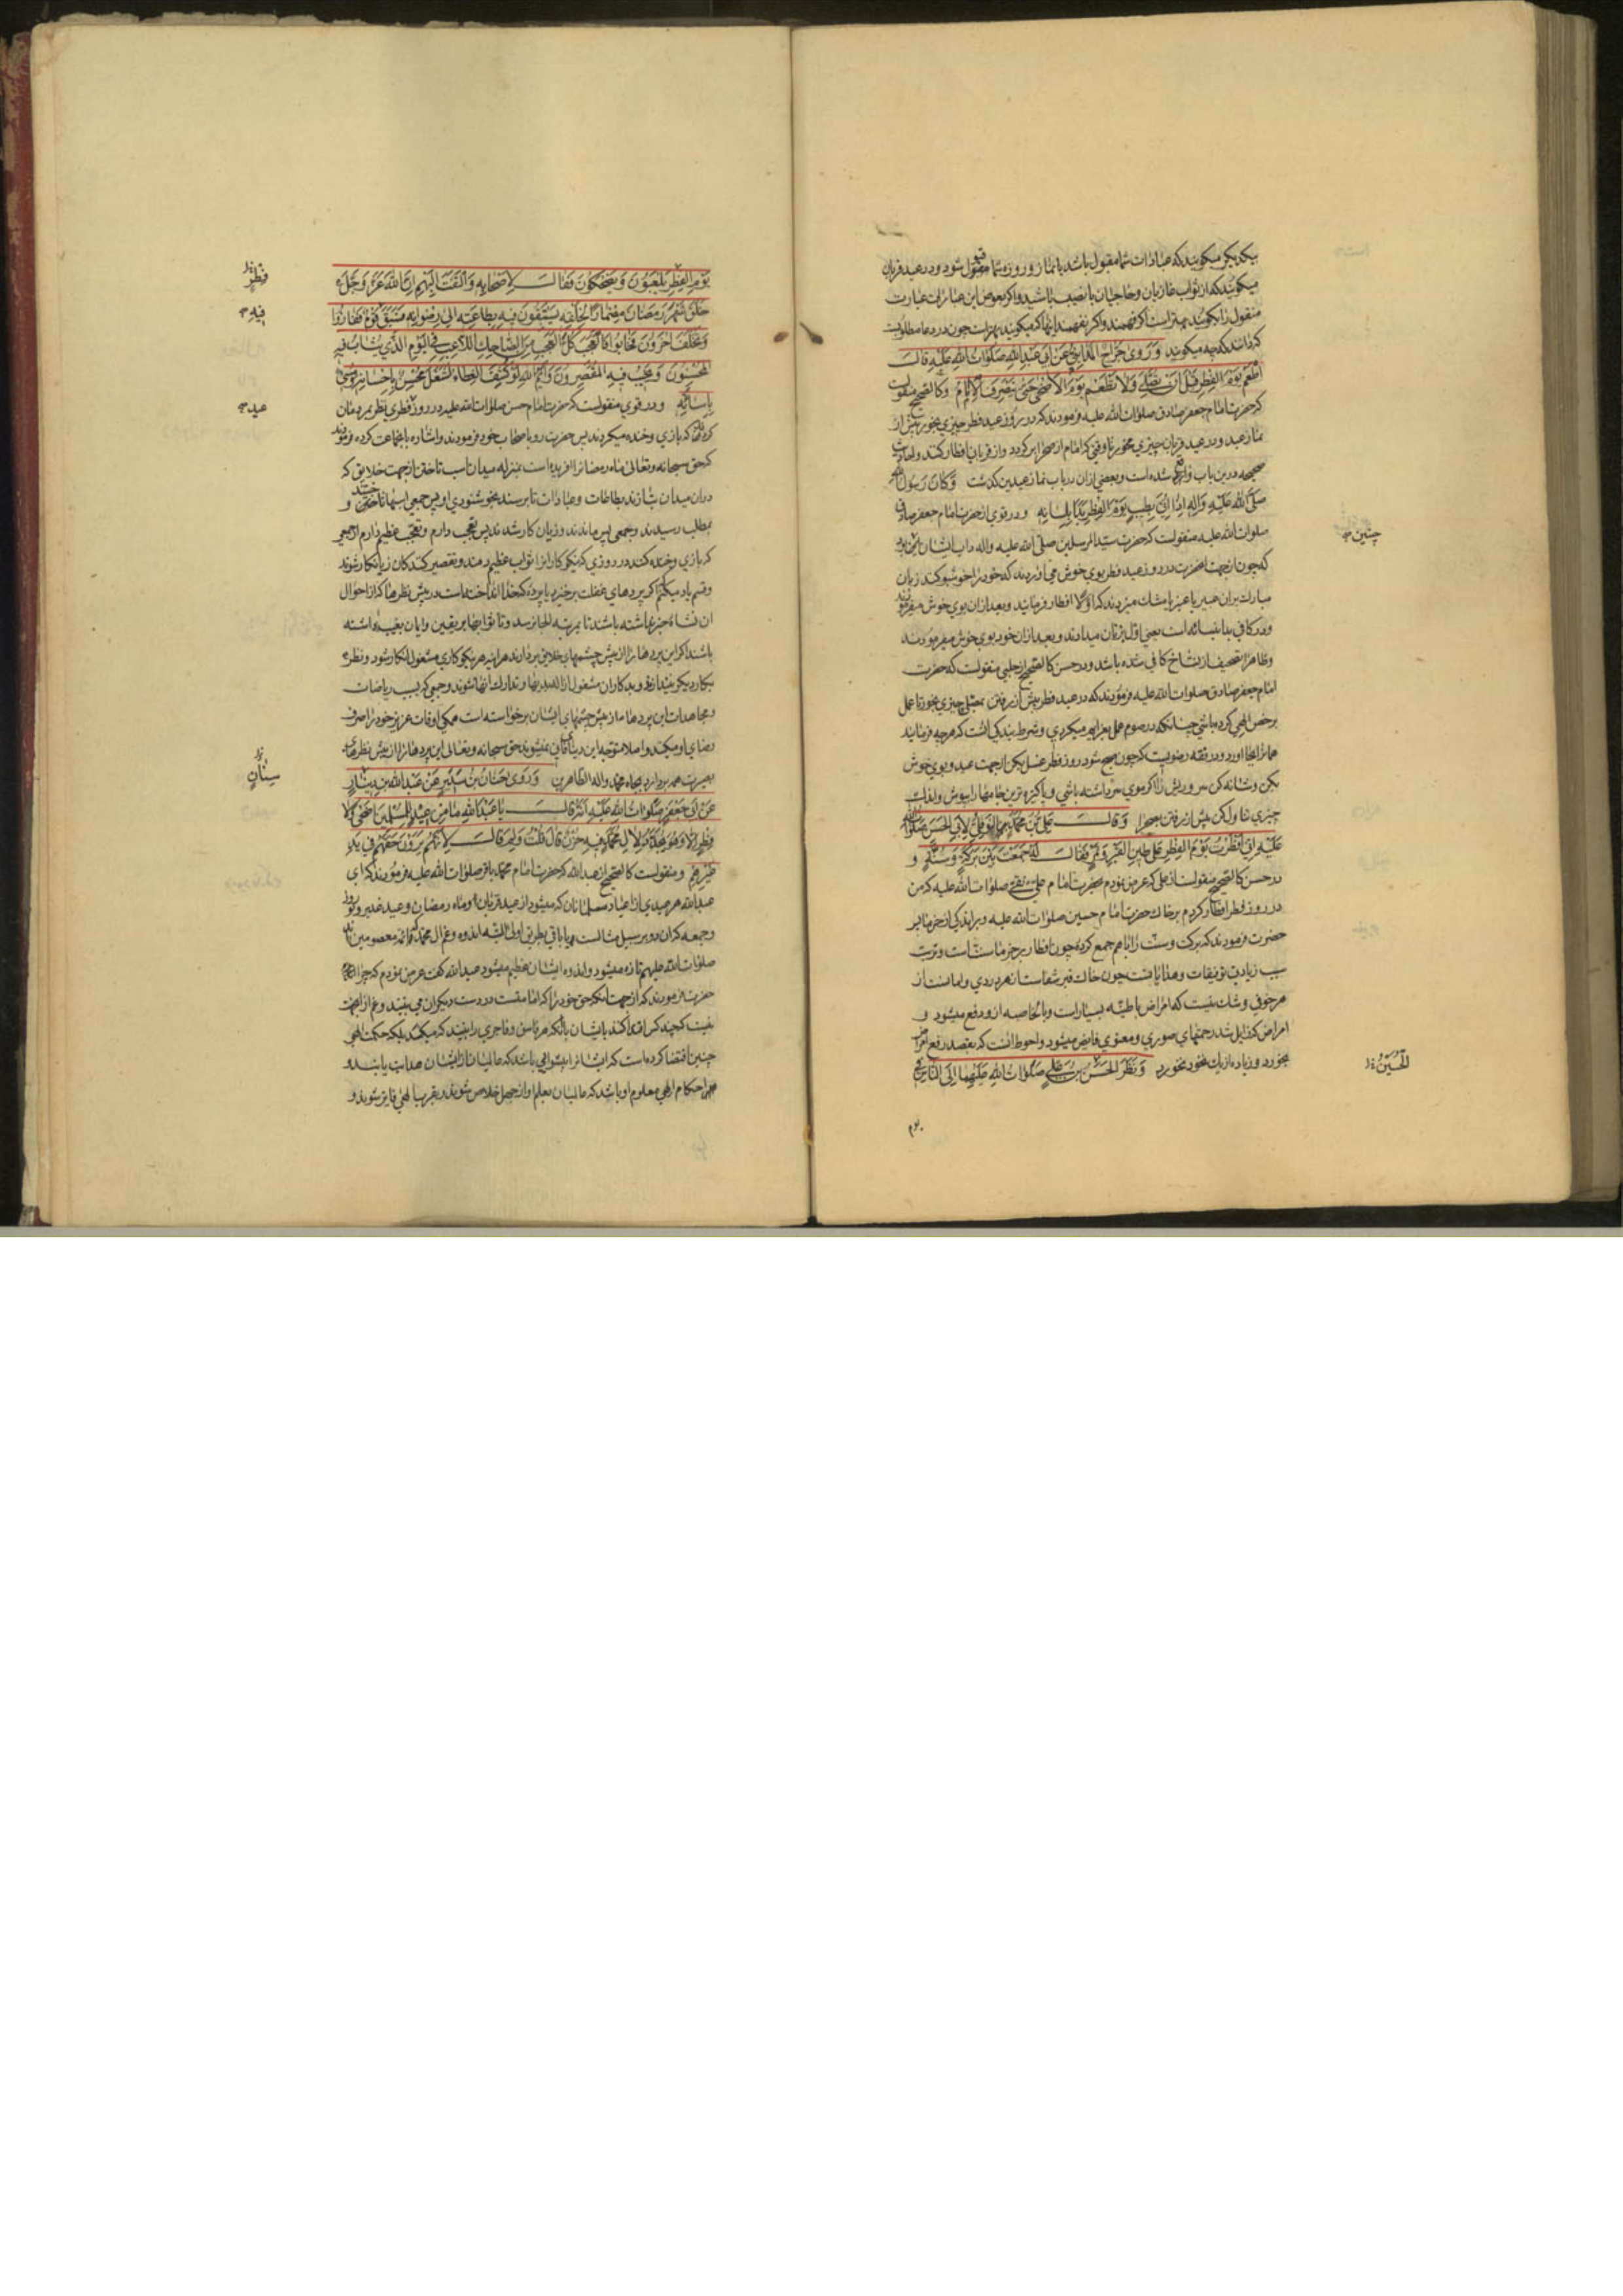 بیکدیکر میکویند که عبادات شما مقبول باشد یا نماز و روزه شما مقبول شود و در عید قربان
میکویند که از ثواب غازیان و حاجیان با نصیب باشید و اکر بعوض این عبارات عبارت
منقول را بکویند بهتر است اکر فهمند و اکر نفهمند اینها که میکویند بهتر است چون در دعا مطلوبست
که داند که چه میکوید وَرَوی جَرّاحُ المَدایِنیُّ عَن اَبی عَبدِاللهِ صَلَواتُ اللهِ عَلَیهِ قالَ
اَطعِم یَومَ الفِطرِ قَبلَ اَن تُصَلِّیَ وَلا تَطعَم یَومَ الاَضحی حَتّی یَنصَرِفَ الاِمامُ و کالصحیح منقولست
که حضرت امام جعفر صادق صلوات الله علیه فرمودند که در روز عید فطر چیزی بخور پیش از
نماز عید و در عید قربان چیزی مخور تا وقتی که امام از صحرا بر کردد و از قربانی افطار کند و احادیث
صحیحه درین باب واقع شده است و بعضی از ان در باب نماز عیدین کذشت وَکانَ رَسُولُ اللهِ
صَلَّی اللهُ عَلَیهِ وَآلِهِ اِذا اُتِیَ بِطیبٍ یَومَ الفِطرِ بَدَاَ بِلِسانِهِ و در قوی از حضرت امام جعفر صادق
صلوات الله علیه منقولست که حضرت سید المرسلین صلی الله علیه و اله داب ایشان چنین بود
که چون از جهت انحضرت در روز عید فطر بوی خوش می اوردند که خود را خوشبو کند زبان
مبارک بران عبیر یا عنبر یا مشک میزدند که اولا افطار فرمایند و بعد از ان بوی خوش میفرمودند
و در کافی بدا بنسائه است یعنی اول بزنان میدادند و بعد از ان خود بوی خوش میفرمودند
و ظاهرا تصحیف از نساخ کافی شده باشد و در حسن کالصحیح از حلبی منقولست که حضرت
امام جعفر صادق صلوات الله علیه فرمودند که در عید فطر پیش از رفتن بمصلی چیزی بخور تا عمل
برخص الهی کرده باشی چنانکه در صوم عمل بعزایم میکردی و شرط بندکی انست که هر چه فرمایند
همانرا بجا اورد و در فقه رضویست که چون صبح شود روز فطر غسل بکن از جهت عید و بوی خوش
بکن و شانه کن سر و ریش را اکر موی سر داشته باشی و پاکیزه ترین جامها را بپوش و اندک
چیزی تناول کن پیش از رفتن بصحرا وَقالَ عَلِیُّ بنُ مُحَمَّدٍ النَّوفَلِیُّ لِاَبِی الحَسَنِ صَلَواتُ اللهِ
عَلَیهِ اِنّی اَفطَرتُ یَومَ الفِطرِ عَلی طینِ القَبرِ وَتَمرٍ فَقالَ لَهُ جَمَعتَ بَینَ بَرَکَةٍ وَسُنَّةٍ و
در حسن کالصحیح منقولست از علی که عرض نمودم بحضرت امام علی نقی صلوات الله علیه که من
در روز فطر افطار کردم بر خاک حضرت امام حسین صلوات الله علیه و بر اندکی از خرما پس
حضرت فرمودند که برکت و سنت را با هم جمع کردی چون افطار بر خرما سنت است و تربت
سبب زیادتی توفیقات و هدایاتست چون خاک قبر شفاست از هر دردی و امانست از
هر خوفی و شک نیست که امراض باطنه بسیار است و بالخاصیه ازو دفع میشود و
امراض که زایل شد رحمتهای صوری و معنوی فایض میشود و احوط انست که بقصد رفع امراض
بخورد و زیاده از یک نخود نخورد وَنَظَرَ الحَسَنُ بنُ عَلِیٍّ صَلَواتُ اللهِ عَلَیهِما اِلَی النّاسِ فی
یوم
چنین
الحُسَینُ
یَومِ الفِطرِ یَلعَبُونَ وَیَضحَکُونَ فَقالَ لِاَصحابِهِ وَالتَفَتَ اِلَیهِم اِنَّ اللهَ عَزَّ وَجَلَّ
خَلَقَ شَهرَ رَمَضانَ مِضماراً لِخَلقِهِ یَستَبِقُونَ فیهِ بِطاعَتِهِ اِلی رِضوانِهِ فَسَبَقَ قَومٌ فَفازُوا
وَتَخَلَّفَ آخَرُونَ فَخابُوا فَالعَجَبُ کُلُّ العَجَبِ مِنَ الضّاحِکِ اللّاعِبِ فِی الیَومِ الَّذی یُثابُ فیهِ
المُحسِنُونَ وَیَخیبُ فیهِ المُقَصِّرُونَ وَایمُ اللهِ لَو کُشِفَ الغِطاءُ لَشُغِلَ مُحسِنٌ بِاِحسانِهِ وَمُسیءٌ
بِاِساءَتِهِ و در قوی منقولست که حضرت امام حسن صلوات الله علیه در روز فطری نظر بمردمان
کردند که بازی و خنده میکردند پس حضرت رو باصحاب خود فرمودند و اشاره با بجماعت کرده فرمودند
که حق سبحانه و تعالی ماه رمضان را افریده است بمنزله میدان اسب تاختن از جهت خلایق که
دران میدان بتازند بطاعات و عبادات تا برسند بخوشنودی او پس جمعی اسبها تاختند و
بمطلب رسیدند و جمعی پس ماندند و زیان کار شدند پس تعجب دارم و تعجب عظیم دارم از جمعی
که بازی و خنده کنند در روزی که نیکوکارانرا ثواب عظیم دهند و تقصیر کنندکان زیانکار شوند
و قسم یاد میکنم که اکر پردهای غفلت برخیزد یا پرده که خدا انداخته است در پیش نظرها که از احوال
ان نشاه خبر نداشته باشند تا بمرتبه الجا نرسد و تا ثوابها بر یقین و ایمان بغیب داشته
باشند اکر این پردها را از پیش چشمهای خلایق بردارند هر اینه هر نیکوکاری مشغول انکار شود و نظر
بکار دیکر نیندازد و بدکاران مشغول ازاله بدیها و تدارک انها شوند و جمعی که بسبب ریاضات
و مجاهدات این پردها از پیش چشمهای ایشان برخواسته است همکی اوقات عزیز خود را صرف
رضای او میکنند و اصلا متوجه این دنیای فانی نمیشوند حق سبحانه و تعالی این پردها را از پیش نظرهای
بصیرت همه بردارد بجاه محمد و اله الطاهرین وَرَوی حَنانُ بنُ سَدیرٍ عَن عَبدِاللهِ بنِ دینارٍ
عَن اَبی جَعفَرٍ صَلَواتُ اللهِ عَلَیهِ اَنَّهُ قالَ یا عَبدَاللهِ ما مِن عیدٍ لِلمُسلِمینَ اَضحًی وَلا
فِطرٍ اِلّا وَهُوَ یُجَدَّدُ لِآلِ مُحَمَّدٍ فیهِ حُزنٌ قالَ قُلتُ وَلِمَ قالَ لِاَنَّهُم یَرَونَ حَقَّهُم فی یَدِ
غَیرِهِم و منقولست کالصحیح از عبدالله که حضرت امام محمد باقر صلوات الله علیه فرمودند که ای
عبدالله هر عیدی از اعیاد مسلمانان که میشود از عید قربان و ماه رمضان و عید غدیر و نوروز
صلوات الله علیهم تازه میشود و اندوه ایشان عظیم میشود عبدالله کفت عرض نمودم که چرا
حضرت فرمودند که از جهت انکه حق خود را که امامتست در دست دیکران می بینند و غم از این جهت
نیست که چند کس اقتدا کنند بایشان بانکه هر فاسق و فاجری را بینند که میکنند بلکه حکمت الهی
چنین اقتضا کرده است که ایشانرا پیشوائی باشد که عالمیان از ایشان هدایت یابند و
همه احکام الهی معلوم او باشد که عالمیان بعلم او از جهل خلاص شوند و بقرب الهی فایز شوند و
فِطرٍ
فیهِ
عید
سِنانٍ